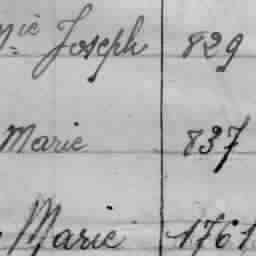 Joseph 829
Marie 837
Marie 1761